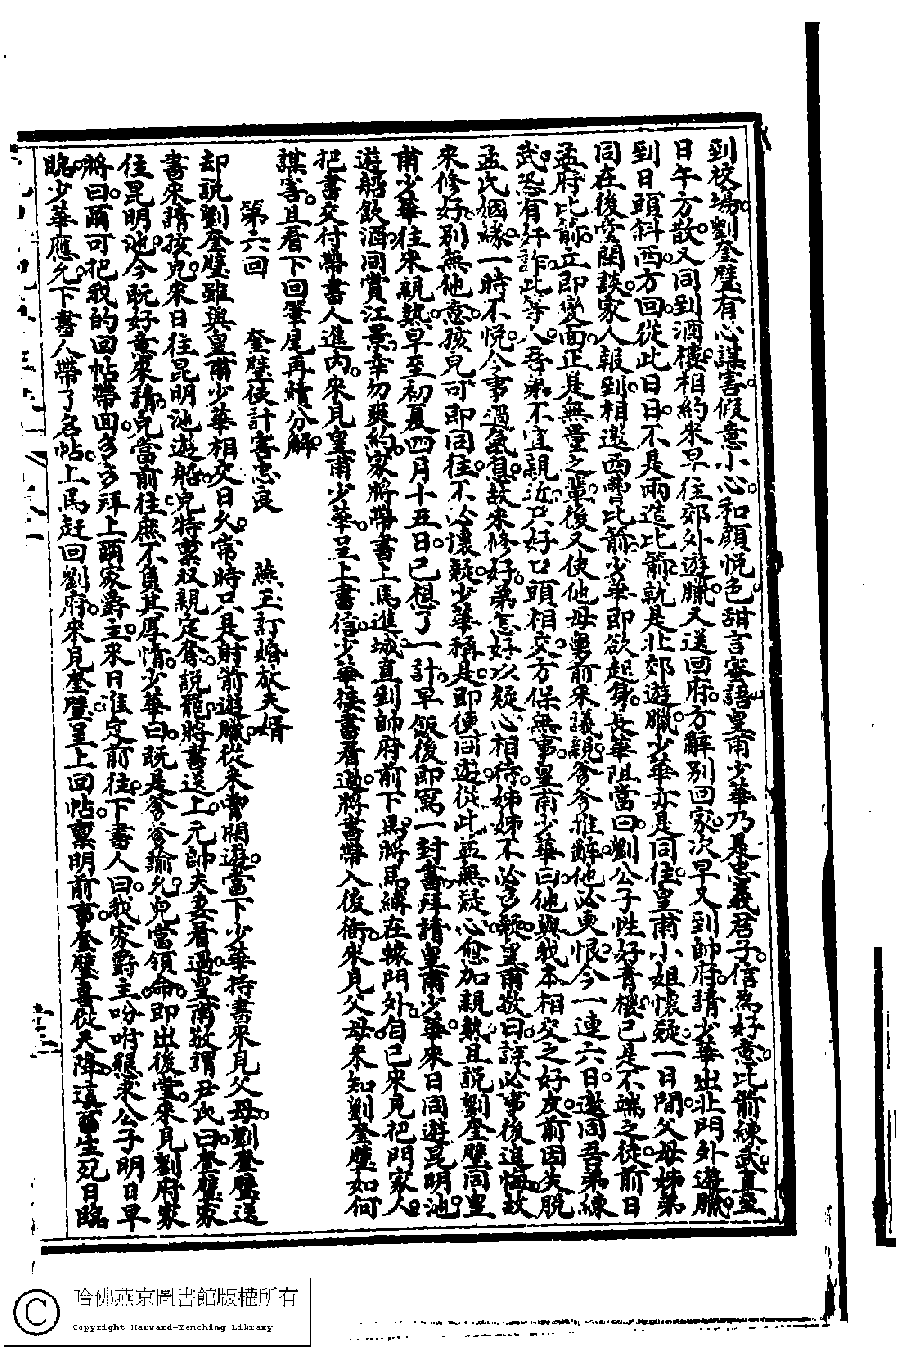 到校場劉奎璧有心謀害假意小心和顏悅色甜言蜜語皇甫少華乃是忠義君子信為好意比箭練武直至
日午方散又同到酒樓相約來早往郊外遊臘又送回府方解別回家次早又到帥府請少華出北門外遊臘
到日頭斜西方回從此日日不是兩造比箭就是北郊遊臘少華亦是同住皇甫小姐懷疑一日間父母姊弟
同在後堂閒談家人報到相邀西郊比箭少華即欲起身長華阻當曰劉公子性好青樓已是不端之徒前日
孟府比箭立即變面正是無量之輩後又使他母舅前來議親爹爹推辭他必更恨今一連六日邀同吾弟練
武恐有奸詐此等人吾弟不宜親近只好口頭相交方保無事皇甫少華曰他與我本相交之好友前因失脫
孟氏姻緣一時不悅今事過氣息故來修好弟怎好以疑心相待姊姊不必多疑皇甫敬曰諒必事後追悔故
來修好別無他意孩兒可即同往不必懷疑少華稱是即便同遊從此並無疑心愈加親熱且說劉奎璧同皇
甫少華往來親熱早至初夏四月十五日已想了一計早飯後即寫一封書拜請皇甫少華來日同遊昆明池
遊船飲酒同賞江景幸勿爽約家將帶書上馬進城直到帥府前下馬將馬縛在轅門外自己來見把門家人
把書交付帶書人進內來見皇甫少華呈上書信少華接書看過將書帶入後衙來見父母來知劉奎璧如何
謀害且看下回筆尾再續分解
第六回　奎璧使計害忠良　燕玉訂婚放夫婿
却說劉奎璧雖與皇甫少華相交日久常時只是射箭遊臘從來曾閒遊當下少華持書來見父母劉奎璧送
書來請孩兒來日往昆明池遊船兒特稟双親定奪說罷將書送上元帥夫妻看過皇甫敬謂尹氏曰奎璧家
住昆明池今既好意來請兒當前往庶不負其厚情少華曰既是爹爹諭允兒當領命即出後堂來見劉府家
將曰爾可把我的回帖帶回多多拜上爾家爵主來日准定前往下書人曰我家爵主吩咐懇求公子明日早
臨少華應允下書人帶了名帖上馬赶回劉府來見奎璧呈上回帖稟明前事奎璧喜從天降這畜生死日臨
哈佛燕京圖書館版權所有
Copyright Harvard-Yenching Library